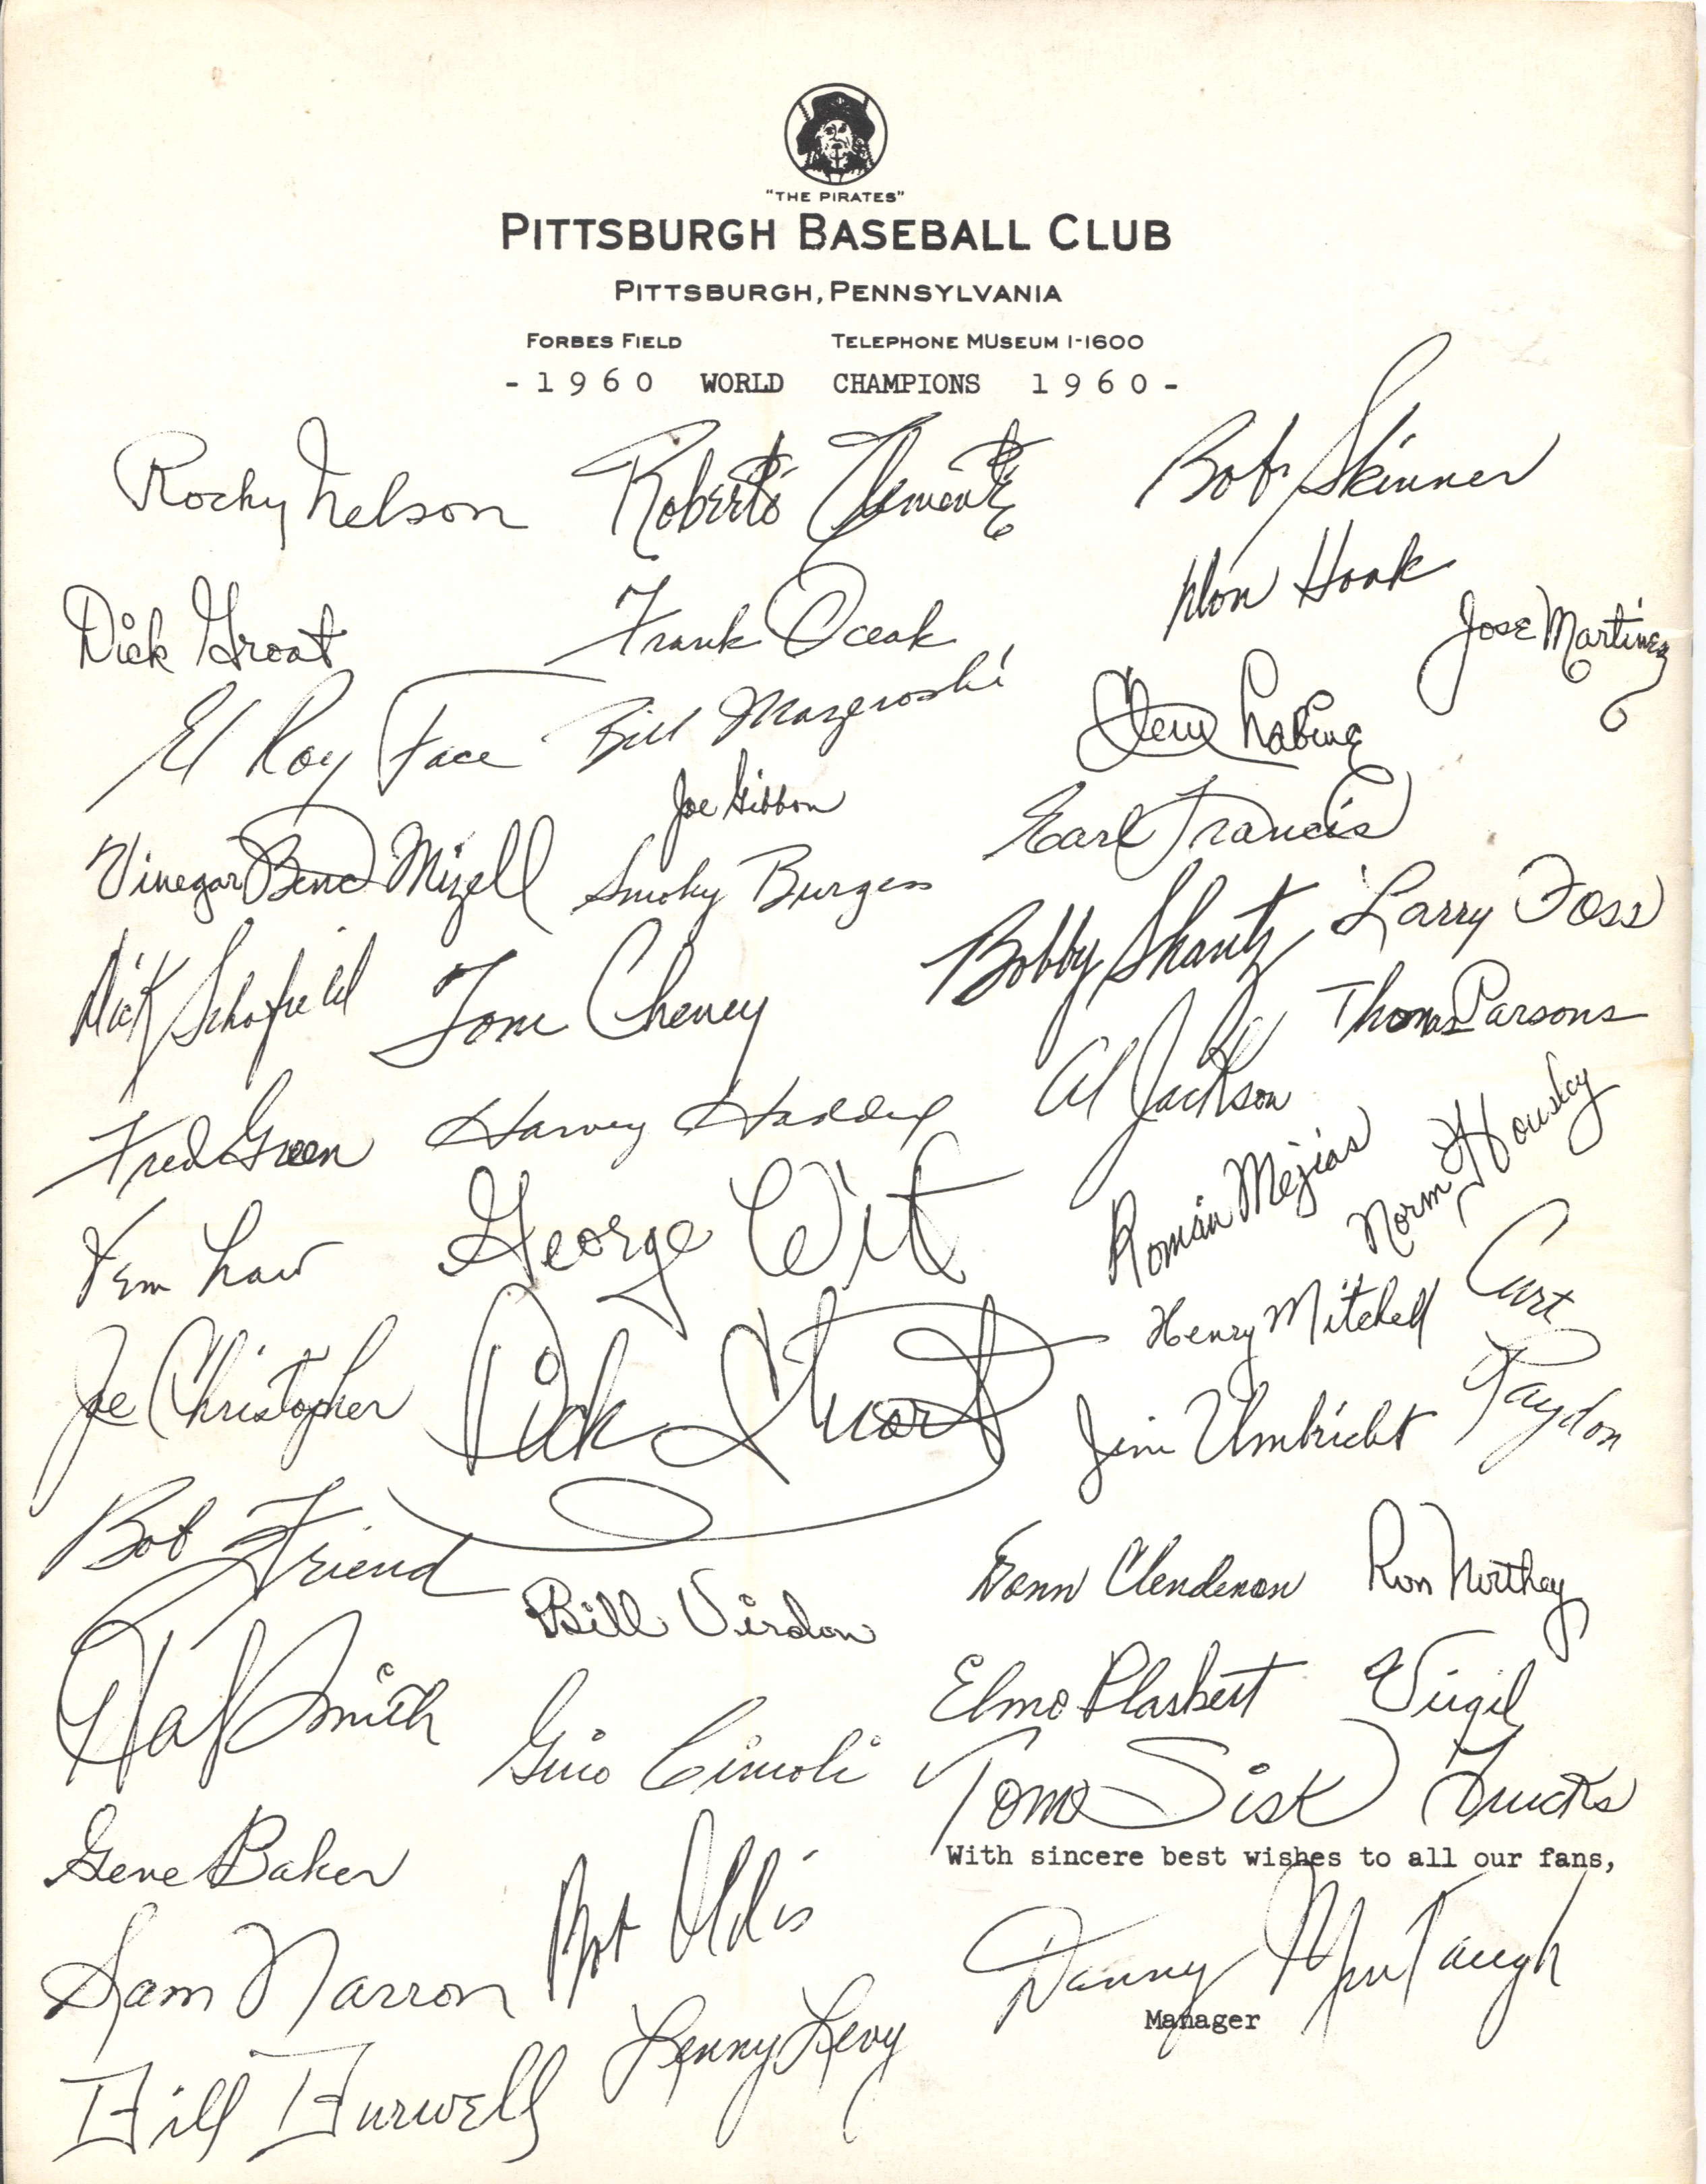 "THE PIRATES"
PITTSBURGH BASEBALL CLUB
PITTSBURGH, PENNSYLVANIA
FORBES FIELD TELEPHONE MUSEUM 1-1600
- 1 9 6 0 WORLD CHAMPIONS 1 9 6 0 -
Rocky Nelson
Roberto Clemente
Bob Skinner
Dick Groat
Frank Oceak
Don Hoak
Jose Martinez
El Roy Face
Bill Mazeroski
Clem Labine
Joe Gibbon
Earl Francis
Vinegar Bend Mizell
Smoky Burgess
Bobby Shantz
Larry Foss
Dick Schofield
Tom Cheney
Thomas Parsons
Al Jackson
Fred Green
Harvey Haddix
Roman Mejias
Norm Housley
Vern Law
George Witt
Henry Mitchell
Curt
Raydon
Joe Christopher
Dick Stuart
Jim Umbricht
Bob Friend
Bill Virdon
Donn Clendenon
Ron Northey
Hal Smith
Gino Cimoli
Elmo Plaskett
Virgil
Trucks
Tom Sisk
Gene Baker
Bob Oldis
With sincere best wishes to all our fans,
Sam Narron
Danny Murtaugh
Manager
Lenny Levy
Bill Burwell